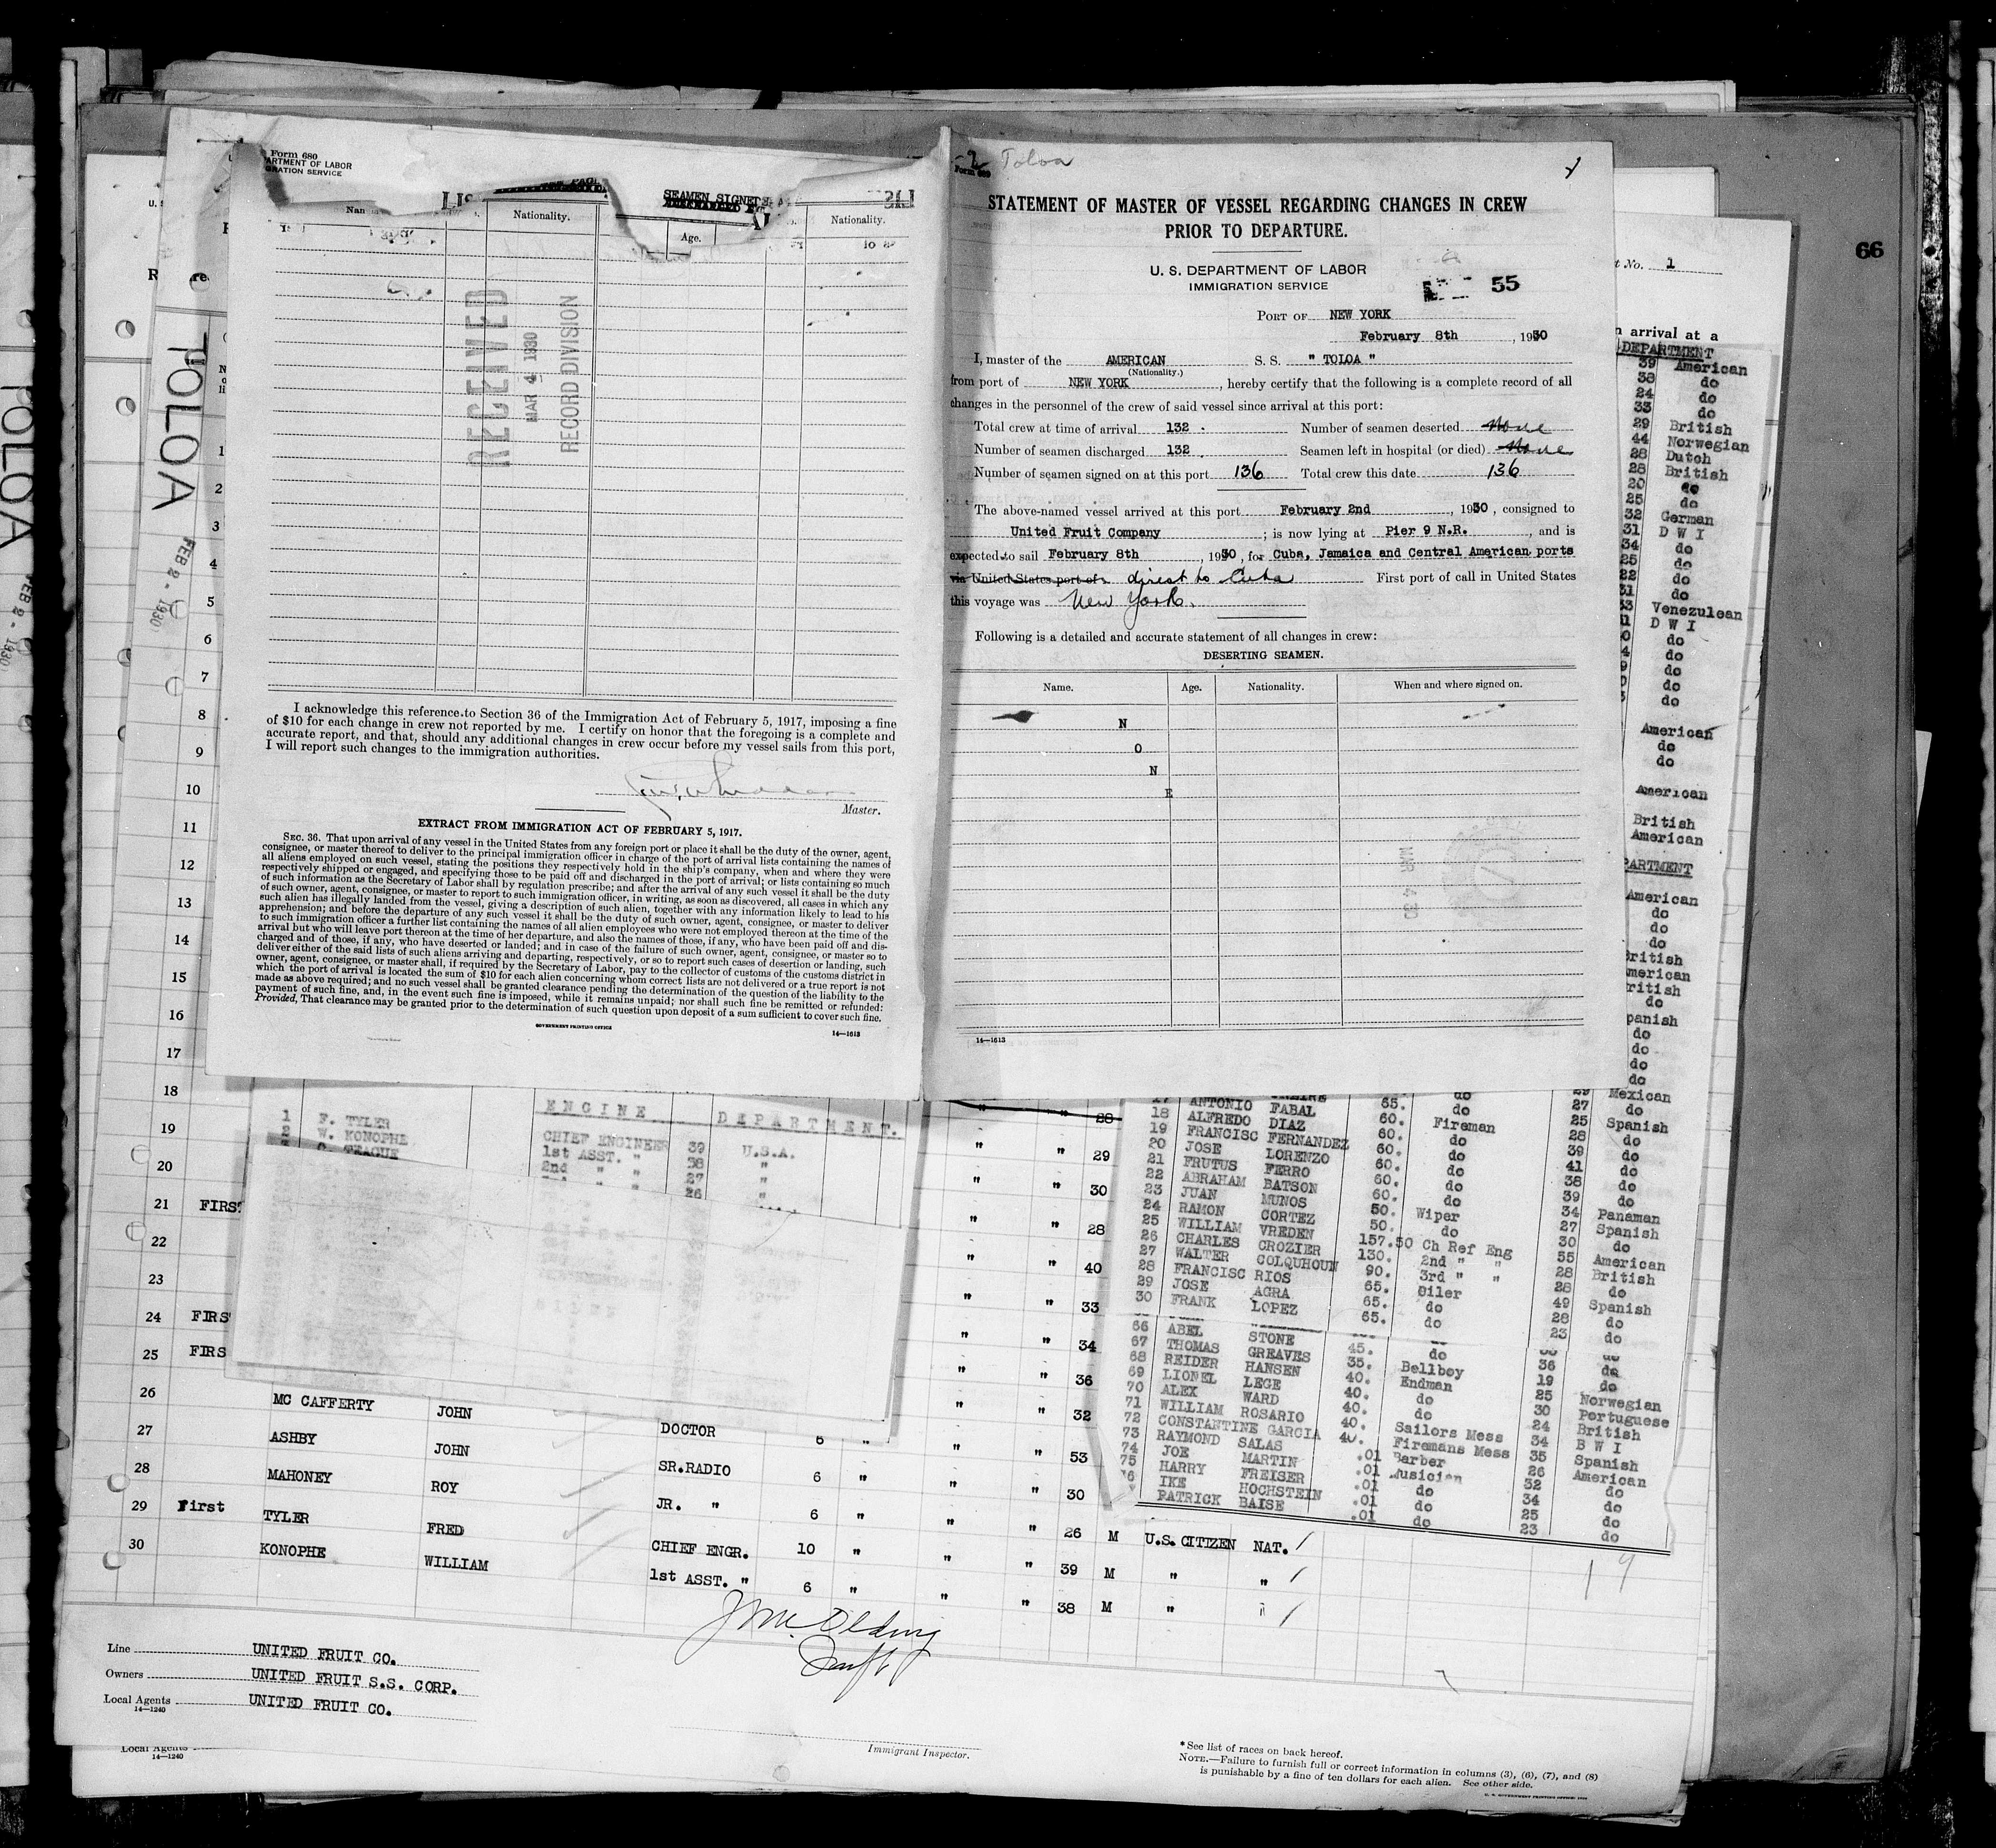 Form 680
ARTMENT OF LABOR
GRATION SERVICE
SEAMEN SIGNED
Nationality.
Age.
Nationality.
RECEIVED
MAR 4 1930
RECORD DIVISION
I acknowledge this reference to Section 36 of the Immigration Act of February 5, 1917, imposing a fine
of $10 for each change in crew not reported by me. I certify on honor that the foregoing is a complete and
accurate report, and that, should any additional changes in crew occur before my vessel sails from this port,
I will report such changes to the immigration authorities.
Master.
EXTRACT FROM IMMIGRATION ACT OF FEBRUARY 5, 1917.
SEC. 36. That upon arrival of any vessel in the United States from any foreign port or place it shall be the duty of the owner, agent,
consignee, or master thereof to deliver to the principal immigration officer in charge of the port of arrival lists containing the names of
all aliens employed on such vessel, stating the positions they respectively hold in the ship's company, when and where they were
respectively shipped or engaged, and specifying those to be paid off and discharged in the port of arrival; or lists containing so much
of such information as the Secretary of Labor shall by regulation prescribe; and after the arrival of any such vessel it shall be the duty
of such owner, agent, consignee, or master to report to such immigration officer, in writing, as soon as discovered, all cases in which any
such alien has illegally landed from the vessel, giving a description of such alien, together with any information likely to lead to his
apprehension; and before the departure of any such vessel it shall be the duty of such owner, agent, consignee, or master to deliver
to such immigration officer a further list containing the names of all alien employees who were not employed thereon at the time of the
arrival but who will leave port thereon at the time of her departure, and also the names of those, if any, who have been paid off and dis-
charged and of those, if any, who have deserted or landed; and in case of the failure of such owner, agent, consignee, or master so to
deliver either of the said lists of such aliens arriving and departing, respectively, or so to report such cases of desertion or landing, such
owner, agent, consignee, or master shall, if required by the Secretary of Labor, pay to the collector of customs of the customs district in
which the port of arrival is located the sum of $10 for each alien concerning whom correct lists are not delivered or a true report is not
made as above required; and no such vessel shall be granted clearance pending the determination of the question of the liability to the
payment of such fine, and, in the event such fine is imposed, while it remains unpaid; nor shall such fine be remitted or refunded:
Provided, That clearance may be granted prior to the determination of such question upon deposit of a sum sufficient to cover such fine.
GOVERNMENT PRINTING OFFICE
14—1613
Toloa
STATEMENT OF MASTER OF VESSEL REGARDING CHANGES IN CREW
PRIOR TO DEPARTURE.
U. S. DEPARTMENT OF LABOR
IMMIGRATION SERVICE
55
PORT OF NEW YORK
February 8th , 1930
I, master of the AMERICAN S. S. " TOLOA "
(Nationality.)
from port of NEW YORK , hereby certify that the following is a complete record of all
changes in the personnel of the crew of said vessel since arrival at this port:
Total crew at time of arrival 132 . Number of seamen deserted None
Number of seamen discharged 132 . Seamen left in hospital (or died) None
Number of seamen signed on at this port 136 Total crew this date 136
The above-named vessel arrived at this port February 2nd , 1930, consigned to
United Fruit Company ; is now lying at Pier 9 N.R. , and is
expected to sail February 8th , 1930, for Cuba, Jamaica and Central American ports
via United States port of direct to Cuba First port of call in United States
this voyage was New York.
Following is a detailed and accurate statement of all changes in crew:
DESERTING SEAMEN.
Name. Age. Nationality. When and where signed on.
N
O
N
E
MAR 4 30
14—1613
66
t No. 1
n arrival at a
DEPARTMENT
39 American
38 do
24 do
33 do
29 British
44 Norwegian
28 Dutch
28 British
20 do
25 do
32 German
31 D W I
34 do
25 do
22 do
31 do
33 Venezulean
D W I
do
do
do
do
do
American
do
do
American
British
American
PARTMENT
American
do
do
do
British
American
British
do
Spanish
do
do
do
do
TOLOA
FEB 2 - 1930
TOLOA
FEB 2 - 1930
1
2
3
4
5
6
7
8
9
10
11
12
13
14
15
16
17
18
19
20
21 FIRST
22
23
24 FIRS
25 FIRS
26
27
28
29 First
30
ENGINE DEPARTMENT.
1 F. TYLER CHIEF ENGINEER 39 U.S.A.
2 W. KONOPHE 1st ASST. " 38 "
TEAGUE 2nd " " 27 "
26 "
28
29
30
28
40
33
34
36
32
53
30
26 M U.S. CITIZEN NAT.
39 M " "
38 M " "
MC CAFFERTY JOHN DOCTOR 6 "
ASHBY JOHN SR.RADIO 6 "
MAHONEY ROY JR. " 6 "
TYLER FRED CHIEF ENGR. 10 "
KONOPHE WILLIAM 1st ASST. " 6 "
29 Mexican
17 ANTONIO FABAL 65. do 27 do
18 ALFREDO DIAZ 60. Fireman 25 Spanish
19 FRANCISC FERNANDEZ 60. do 28 do
20 JOSE LORENZO 60. do 39 do
21 FRUTUS FERRO 60. do 41 do
22 ABRAHAM BATSON 60. do 38 do
23 JUAN MUNOS 60. do 39 do
24 RAMON CORTEZ 50. Wiper 34 Panaman
25 WILLIAM VREDEN 50. do 27 Spanish
26 CHARLES CROZIER 157.50 Ch Ref Eng 30 do
27 WALTER COLQUHOUN 130. 2nd " " 55 American
28 FRANCISC RIOS 90. 3rd " " 28 British
29 JOSE AGRA 65. Oiler 28 do
30 FRANK LOPEZ 65. do 49 Spanish
65. do 28 do
23 do
66 ABEL STONE 45. do
67 THOMAS GREAVES 35. Bellboy 36 do
68 REIDER HANSEN 40. Endman 19 do
69 LIONEL LEGE 40. do 25 Norwegian
70 ALEX WARD 40. do 30 Portuguese
71 WILLIAM ROSARIO 40. Sailors Mess 24 British
72 CONSTANTINE GARCIA 40. Firemans Mess 34 B W I
73 RAYMOND SALAS .01 Barber 35 Spanish
74 JOE MARTIN .01 Musician 26 American
75 HARRY FREISER .01 do 32 do
76 IKE HOCHSTEIN .01 do 34 do
PATRICK BAISE .01 do 25 do
23 do
Line UNITED FRUIT CO.
Owners UNITED FRUIT S.S. CORP.
Local Agents UNITED FRUIT CO.
14—1240
Local Agents
14—1240
Immigrant Inspector.
*See list of races on back hereof.
NOTE.—Failure to furnish full or correct information in columns (3), (6), (7), and (8)
is punishable by a fine of ten dollars for each alien. See other side.